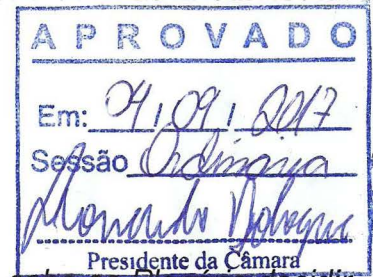 APROVADO
Em: 04 / 09 / 2017
Sessão Ordinária
Presidente da Câmara